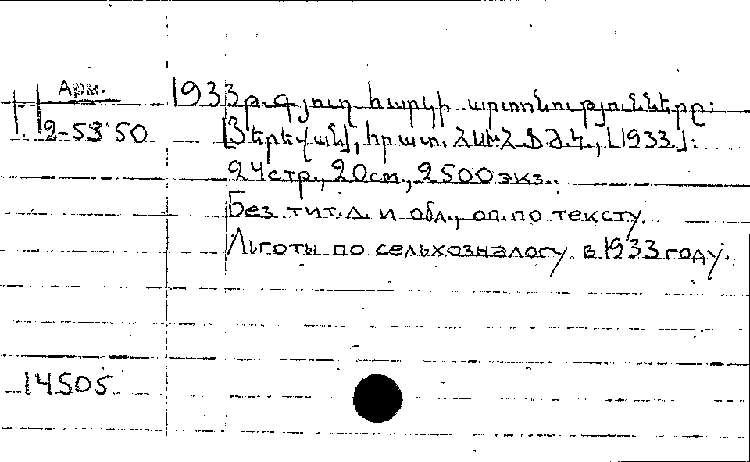 Арм.
2-53 50
1933 թ. գյուղ հարկի արտոնությունները:
[Յերեվան], հրատ. ՀԱՄԽ ՖԺԿ, [1933]:
24 стр., 20 см., 2500 экз.
Без тит. л. и обл., оп. по тексту.
Льготы по сельхозналогу в 1933 году.
14505